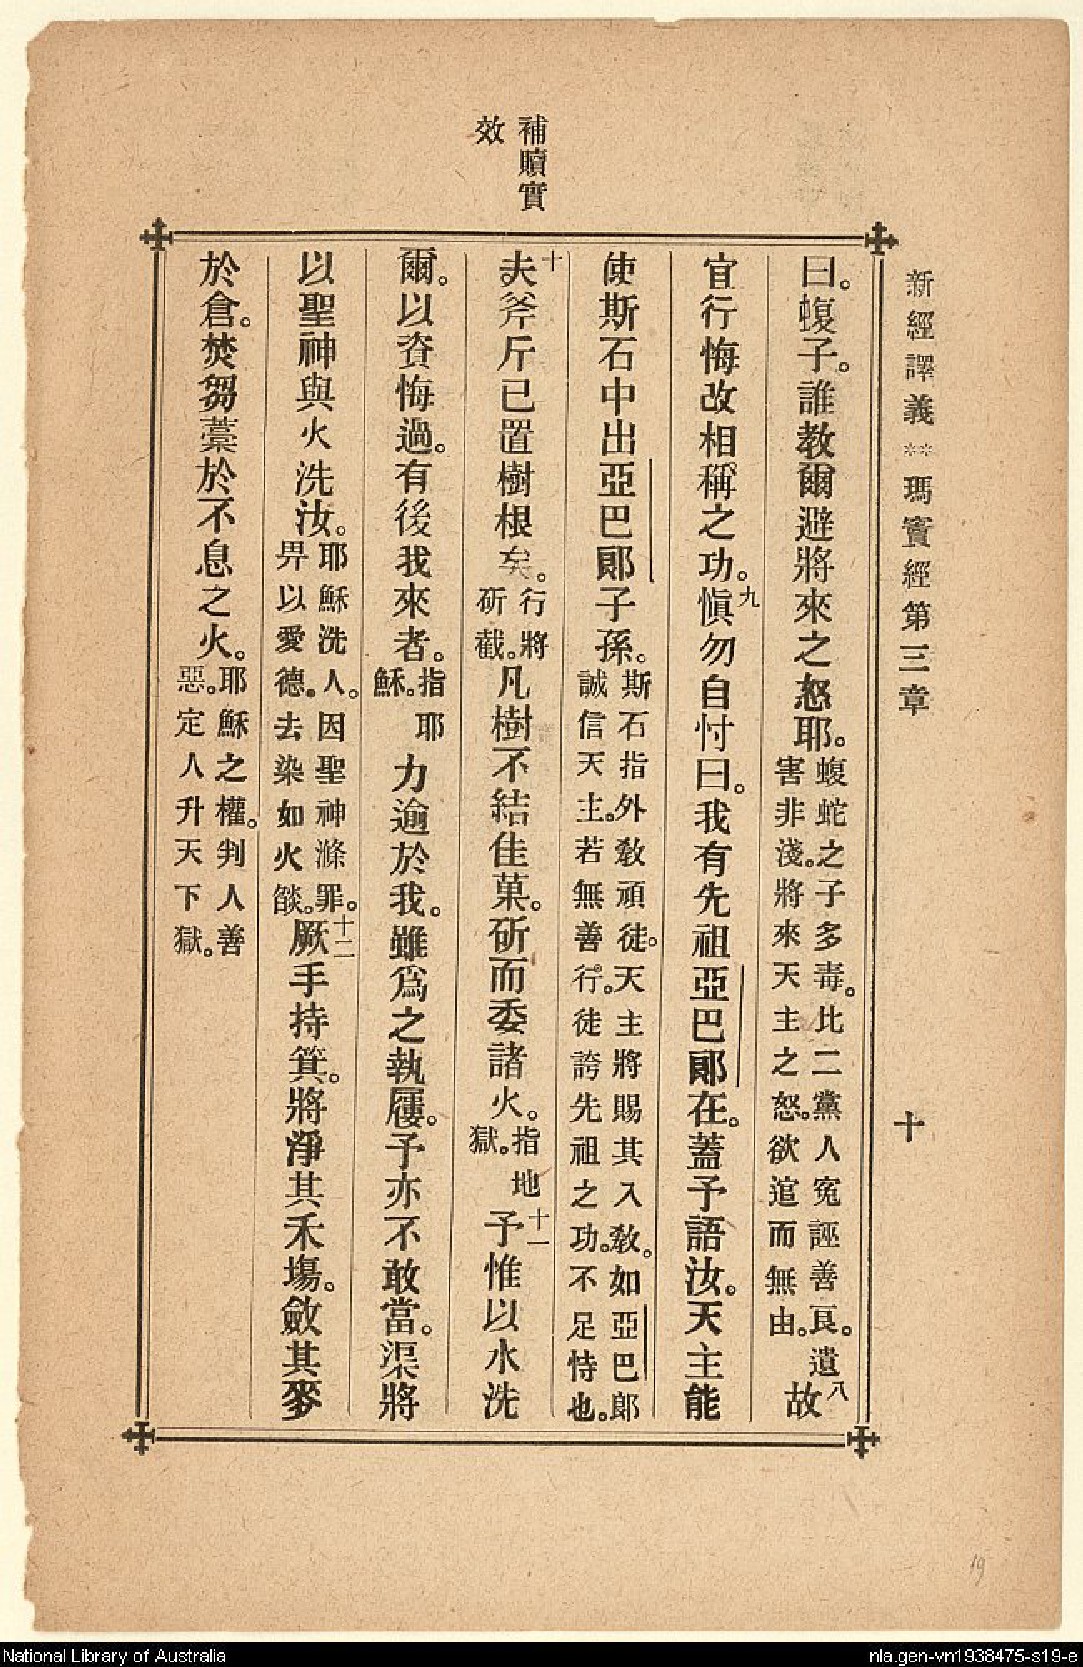 新經譯義**瑪竇經第三章
十
補贖實
效
曰。蝮子。誰教爾避將來之怒耶。
蝮蛇之子多毒。比二黨人冤誣善良。遣
害非淺。將來天主之怒。欲逭而無由。
八
故
宜行悔改相稱之功。九愼勿自忖曰。我有先祖亞巴郞在。蓋予語汝。天主能
使斯石中出亞巴郞子孫。
斯石指外敎頑徒。天主將賜其入敎。如亞巴郞
誠信天主。若無善行。徒誇先祖之功。不足恃也。
十夫斧斤已置樹根矣。
行將
斫截。
凡樹不結佳菓。斫而委諸火。
指地
獄。
十一予惟以水洗
爾。以資悔過。有後我來者。
指耶
穌。
力逾於我。雖爲之執屨。予亦不敢當。渠將
以聖神與火洗汝。
耶穌洗人。因聖神滌罪。
畀以愛德。去染如火燄。
十二厥手持箕。將淨其禾塲。斂其麥
於倉。焚芻藁於不息之火。
耶穌之權。判人善
惡。定人升天下獄。
19
National Library of Australia
nla.gen-vn1938475-s19-e